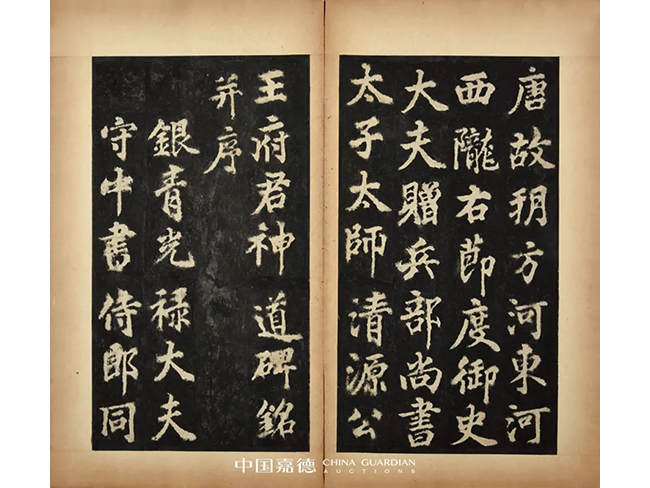 唐故朔方河東河
西隴右節度御史
大夫贈兵部尚書
太子太師清源公
王府君神道碑銘
并序
銀青光禄大夫
守中書侍郎同
中国嘉德 CHINA GUARDIAN
AUCTIONS